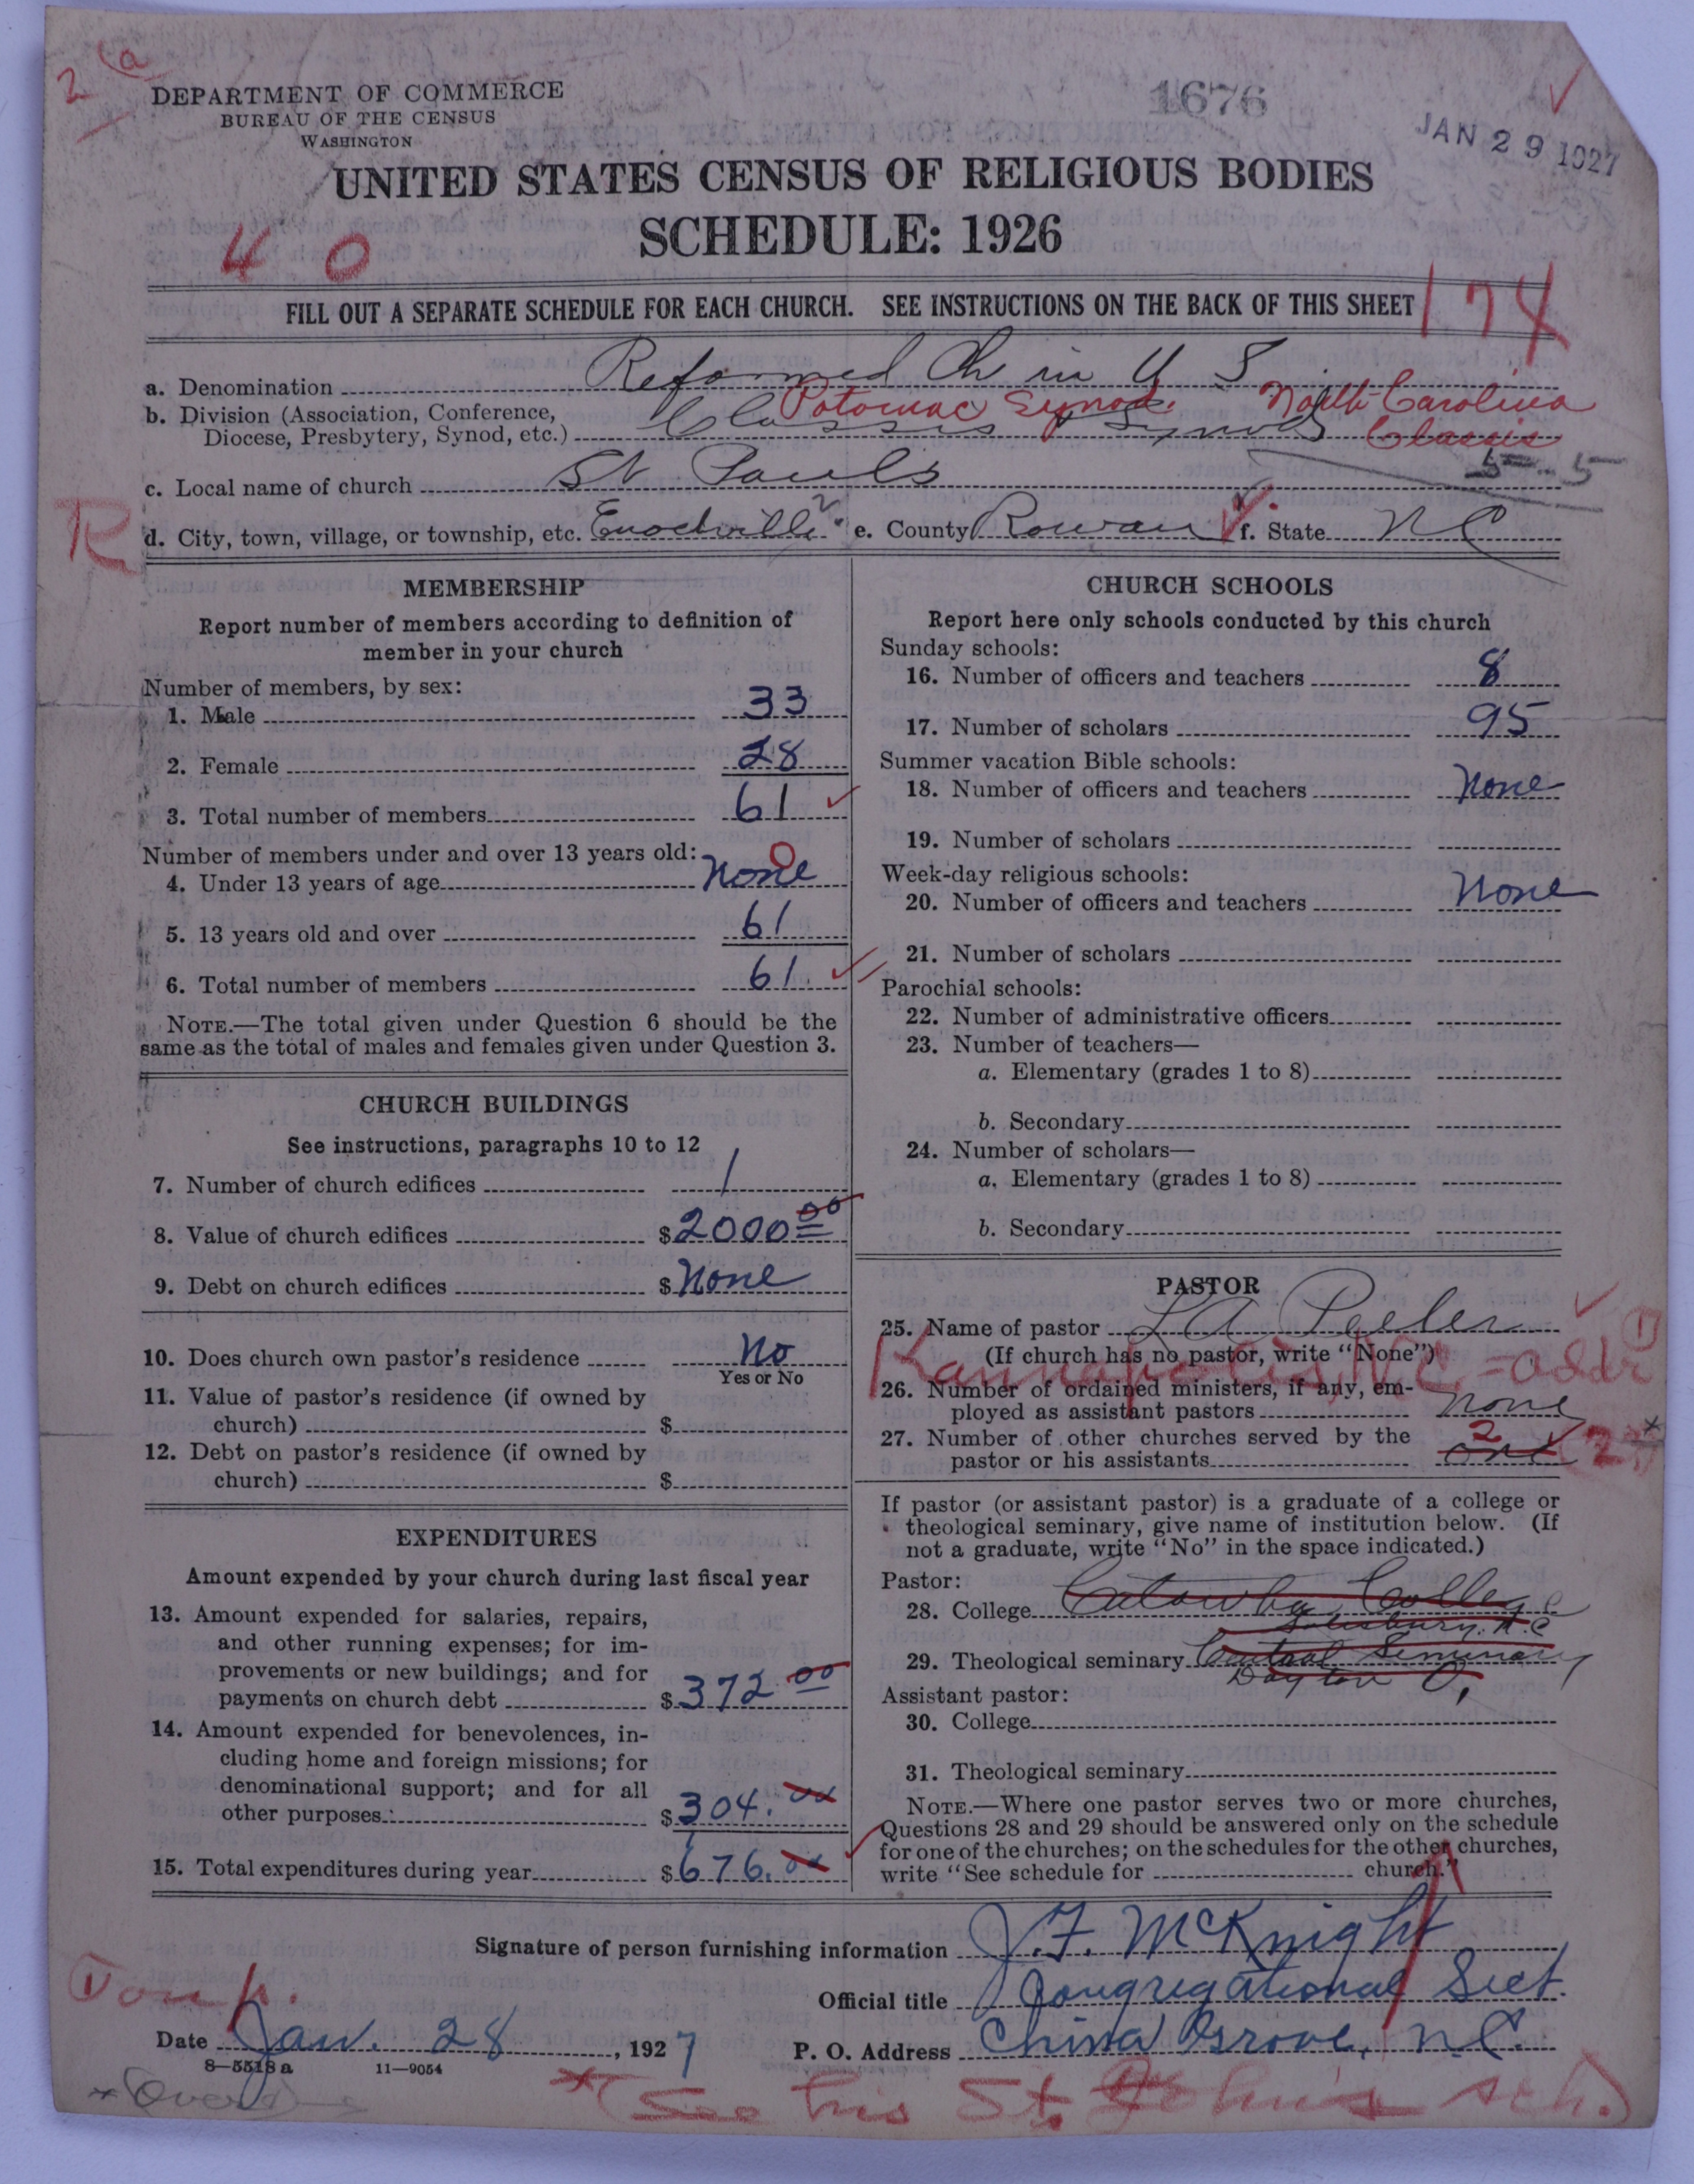 2 (a
DEPARTMENT OF COMMERCE
BUREAU OF THE CENSUS
WASHINGTON
1676
JAN 29 1927
UNITED STATES CENSUS OF RELIGIOUS BODIES
SCHEDULE: 1926
4 0
FILL OUT A SEPARATE SCHEDULE FOR EACH CHURCH. SEE INSTRUCTIONS ON THE BACK OF THIS SHEET
174
a. Denomination Reformed Ch in U S
b. Division (Association, Conference, Potomac Synod. North Carolina
Diocese, Presbytery, Synod, etc.) Classis Synod Classis
5-5
c. Local name of church St Pauls
R
d. City, town, village, or township, etc. Enochville e. County Rowan f. State NC
MEMBERSHIP
Report number of members according to definition of
member in your church
Number of members, by sex:
1. Male 33
2. Female 28
3. Total number of members 61
Number of members under and over 13 years old: 0
4. Under 13 years of age None
5. 13 years old and over 61
6. Total number of members 61
NOTE.—The total given under Question 6 should be the
same as the total of males and females given under Question 3.
CHURCH BUILDINGS
See instructions, paragraphs 10 to 12
7. Number of church edifices 1
8. Value of church edifices $2000 00
9. Debt on church edifices $None
10. Does church own pastor's residence No
Yes or No
11. Value of pastor's residence (if owned by
church) $
12. Debt on pastor's residence (if owned by
church) $
EXPENDITURES
Amount expended by your church during last fiscal year
13. Amount expended for salaries, repairs,
and other running expenses; for im-
provements or new buildings; and for
payments on church debt $372 00
14. Amount expended for benevolences, in-
cluding home and foreign missions; for
denominational support; and for all
other purposes $304. 00
15. Total expenditures during year $676. 00
CHURCH SCHOOLS
Report here only schools conducted by this church
Sunday schools:
16. Number of officers and teachers 8
17. Number of scholars 95
Summer vacation Bible schools:
18. Number of officers and teachers None
19. Number of scholars
Week-day religious schools:
20. Number of officers and teachers None
21. Number of scholars
Parochial schools:
22. Number of administrative officers
23. Number of teachers—
a. Elementary (grades 1 to 8)
b. Secondary
24. Number of scholars—
a. Elementary (grades 1 to 8)
b. Secondary
PASTOR
25. Name of pastor L A Peeler
(If church has no pastor, write "None")
Kannapolis, N.C. = addr 1
26. Number of ordained ministers, if any, em-
ployed as assistant pastors none
27. Number of other churches served by the 2
pastor or his assistants one (2)*
If pastor (or assistant pastor) is a graduate of a college or
theological seminary, give name of institution below. (If
not a graduate, write "No" in the space indicated.)
Pastor:
28. College Catawba College
Salisbury. N.C
29. Theological seminary Central Seminary
Dayton O,
Assistant pastor:
30. College
31. Theological seminary
NOTE.—Where one pastor serves two or more churches,
Questions 28 and 29 should be answered only on the schedule
for one of the churches; on the schedules for the other churches,
write "See schedule for church."
Signature of person furnishing information J. F. McKnight
Official title Congregational Sect.
Date Jan. 28, 1927 P. O. Address China Grove, N.C.
8—5518 a 11—9054
*Over
*(See his St. John's sch.)